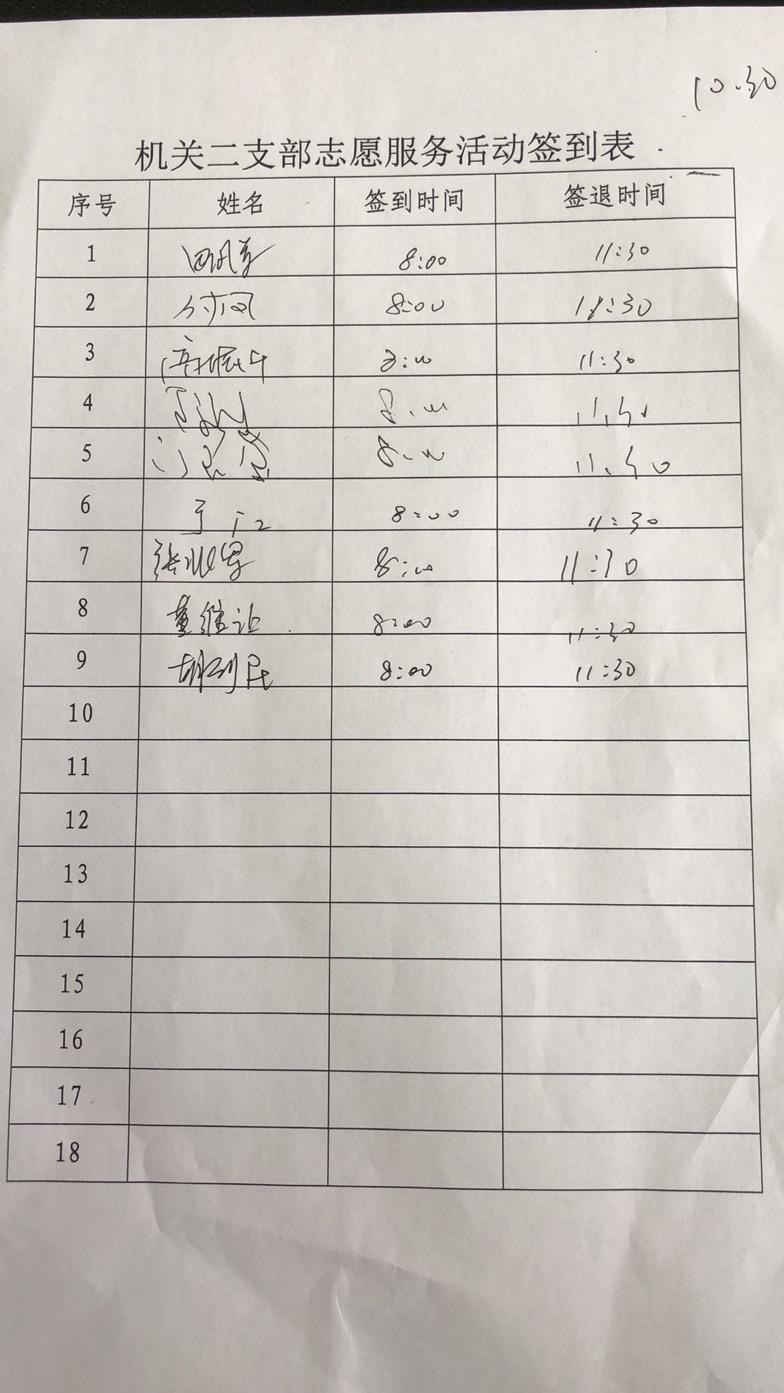 10.30
机关二支部志愿服务活动签到表
序号 姓名 签到时间 签退时间
1 8:00 11:30
2 付凤 8:00 11:30
3 8:00 11:30
4 8:00 11:30
5 8:00 11:30
6 8:00 11:30
7 8:00 11:30
8 董维让 8:00 11:30
9 8:00 11:30
10
11
12
13
14
15
16
17
18